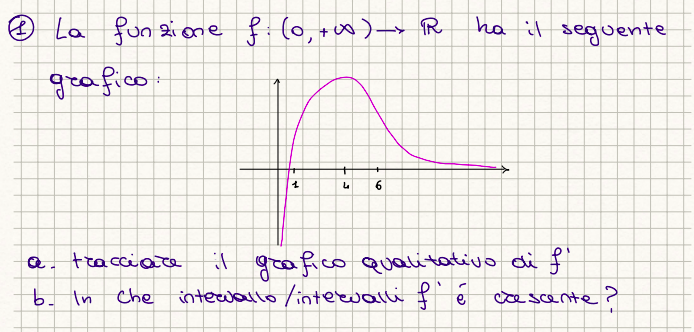 ① La funzione f: (0, +∞) → ℝ ha il seguente
grafico:
1 4 6
a. tracciare il grafico qualitativo di f'
b. In che intervallo/intervalli f' é crescente?